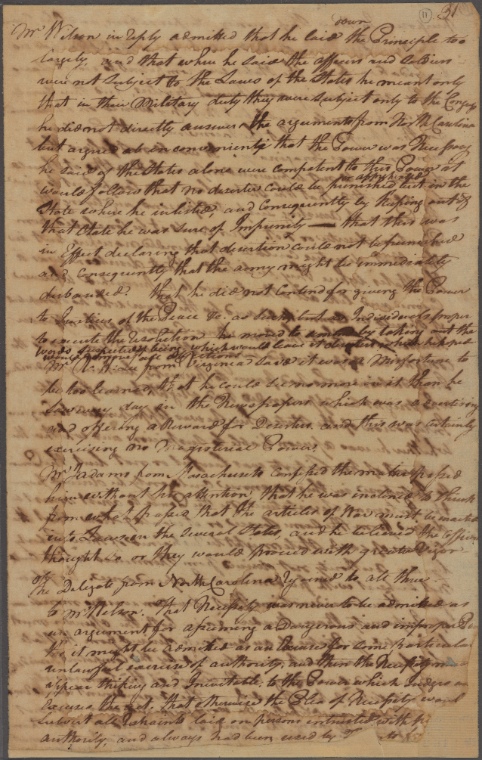 11 31
down
Mr Wilson in reply admitted that he laid the Principle too
largely, and that when he said the officers and soldiers
were not subject to the Laws of the States he meant only
that in their Military duty they were subject only to the Congress
he did not directly answer the arguments from North Carolina
but argued ab inconvenienti, that the Power was Necessary
he said if the States alone were competent to this Power it
would follow that no deserter could be punished but in the
State where he inlisted, and consequently by keeping out of
that State he was sure of Impunity — that this was
in Effect declaring that desertion could not be punished
and consequently that the army might be immediately
disbanded. that he did not contend for giving the Power
to Justices of the Peace as such but as Individuals proper
to execute the Resolution he moved to amend by taking out the
words
Mr from Virginia said it was a Misfortune to
be too learned, that he could see no more in it than he
saw every day in the Newspapers which was advertising
and offering a Reward for Deserters, and this was certainly
exercising no Magisterial Power.
Mr Adams from Massachusets
him without his attention, that he was inclined to think
from what passed that the articles of War must be enacted
into Laws in the several States, and he believed the officers
thought so or they would proceed with greater vigor
The Delegate from North Carolina rejoined to all three
to Mr Wilson. That Necessity was never to be admitted as
an argument for assuming a Dangerous and improper Power
that it might be admitted as an Excuse for some particular
unlawful exercise of authority, and then the Necessity must
appear striking and Inevitable to the Power which Judges or
Excuses the act, that otherwise the Plea of Necessity would
subvert all restraints laid on persons intrusted with
authority, and always had been used by